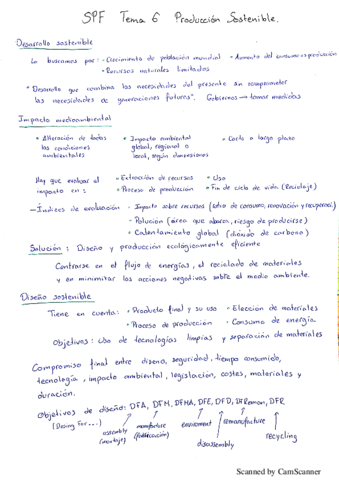 SPF Tema 6 Producción Sostenible.
Desarrollo sostenible
Lo buscamos por: - Crecimiento de población mundial • Aumento del consumo o producción
• Recursos naturales limitados
• "Desarrollo que combina las necesidades del presente sin comprometer
las necesidades de generaciones futuras". Gobiernos → tomar medidas
Impacto medioambiental
• Alteración de todas
las condiciones
ambientales
• Impacto ambiental
global, regional o
local, según dimensiones
• Corto o largo plazo
Hay que evaluar el
impacto en:
• Extracción de recursos • Uso
• Proceso de producción • Fin de ciclo de vida (Reciclaje)
- Índices de evaluación - Impacto sobre recursos (ratio de consumo, renovación y recuperac.)
• Polución (área que abarca, riesgo de producirse)
• Calentamiento global (dióxido de carbono)
Solución: Diseño y producción ecológicamente eficiente
Contrarse en el flujo de energías, el reciclado de materiales
y en minimizar las acciones negativas sobre el medio ambiente.
Diseño sostenible
Tiene en cuenta: • Producto final y su uso - Elección de materiales
• Proceso de producción - Consumo de energía
Objetivos: Uso de tecnologías limpias y separación de materiales
Compromiso final entre diseño, seguridad, tiempo consumido,
tecnología, impacto ambiental, legislación, costes, materiales y
duración.
Objetivos de diseño: DFA, DFM, DFMA, DFE, DFD, DFReman, DFR
(Desing For...)
assembly
(montaje)
manufacture
(fabricación)
enviroment
disassembly
remanufacture
recycling
Scanned by CamScanner